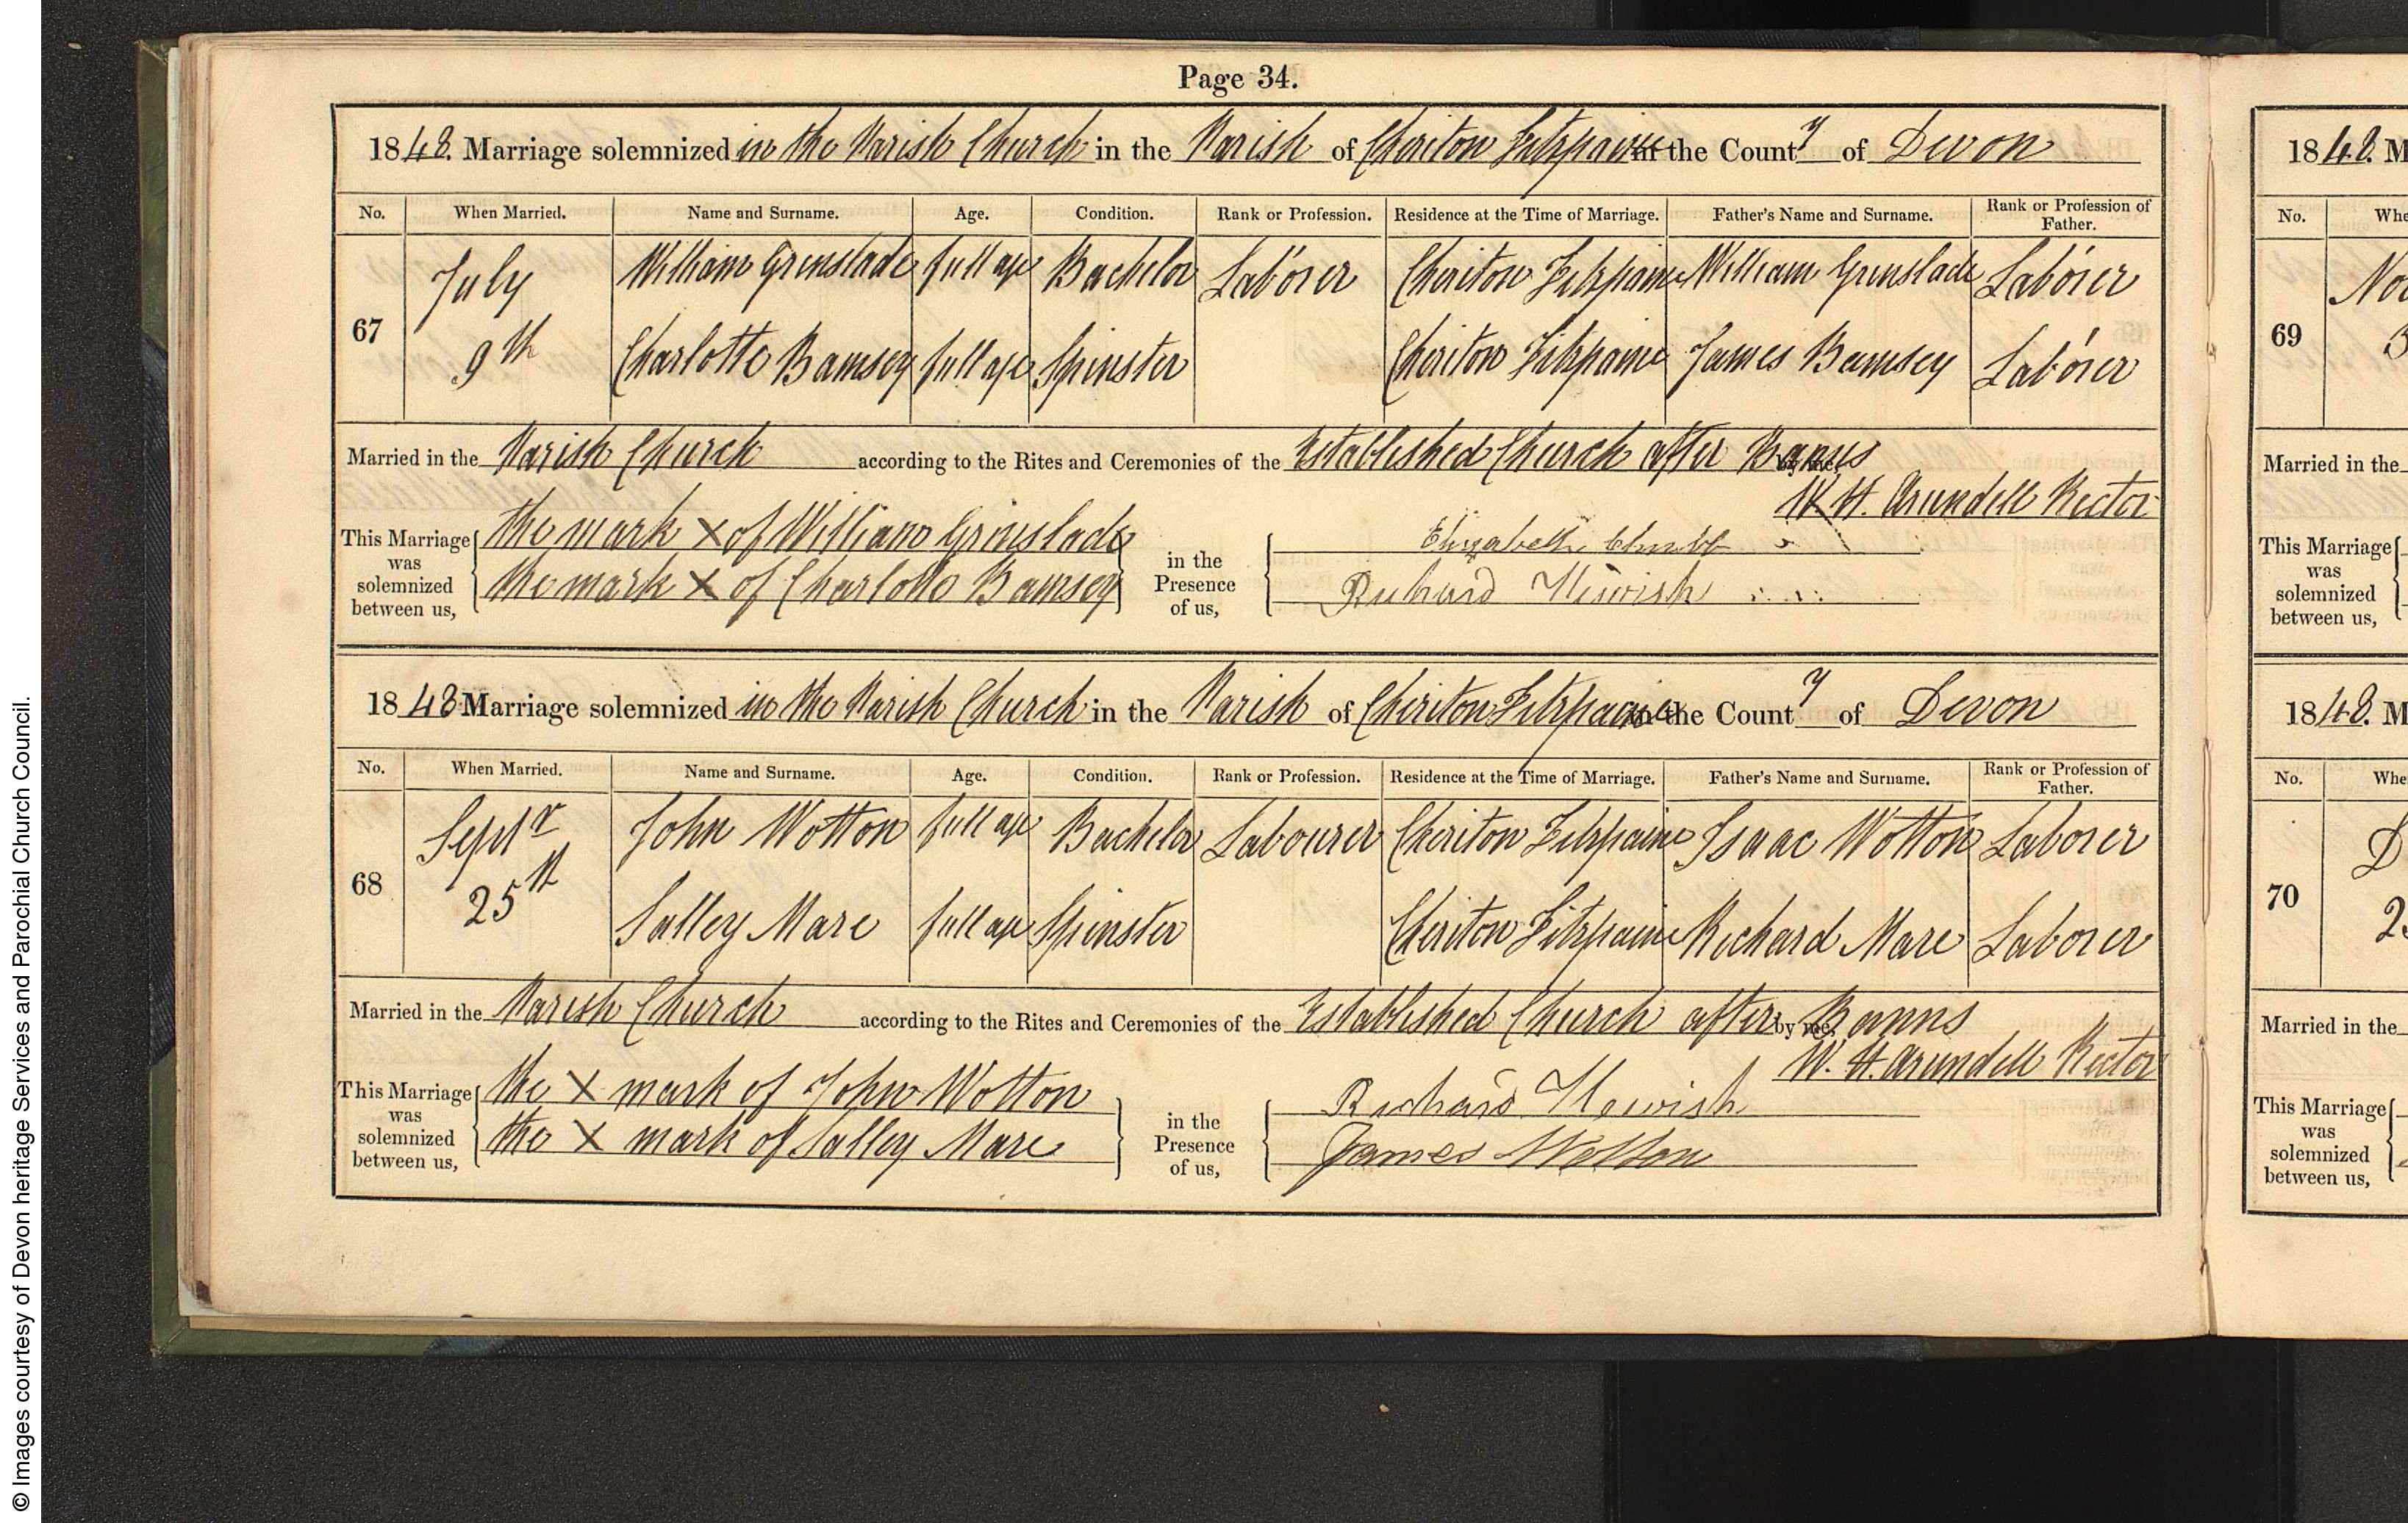 Page 34.
1848. Marriage solemnized in the Parish Church in the Parish of Cheriton Fitzpaine in the County of Devon
No. When Married. Name and Surname. Age. Condition. Rank or Profession. Residence at the Time of Marriage. Father's Name and Surname. Rank or Profession of Father.
67 July 9th William Grinslade full age Bachelor Laborer Cheriton Fitzpaine William Grinslade Laborer
Charlotte Bamsey full age Spinster Cheriton Fitzpaine James Bamsey Laborer
Married in the Parish Church according to the Rites and Ceremonies of the Established Church after Banns by me,
W. H. Arundell Rector
This Marriage was solemnized between us, the mark X of William Grinslade
the mark X of Charlotte Bamsey
in the Presence of us, Elizabeth
Richard Hewish
1848 Marriage solemnized in the Parish Church in the Parish of Cheriton Fitzpaine in the County of Devon
No. When Married. Name and Surname. Age. Condition. Rank or Profession. Residence at the Time of Marriage. Father's Name and Surname. Rank or Profession of Father.
68 Septr 25th John Wotton full age Bachelor Labourer Cheriton Fitzpaine Isaac Wotton Laborer
Salley Mare full age Spinster Cheriton Fitzpaine Richard Mare Laborer
Married in the Parish Church according to the Rites and Ceremonies of the Established Church after Banns by me,
W. H. Arundell Rector
This Marriage was solemnized between us, the X mark of John Wotton
the X mark of Salley Mare
in the Presence of us, Richard Hewish
James Wotton
1848. M
No. Whe
69 Nov
3
Married in the
This Marriage was solemnized between us,
1848. M
No. Whe
70 D
2
Married in the
This Marriage was solemnized between us,
© Images courtesy of Devon heritage Services and Parochial Church Council.